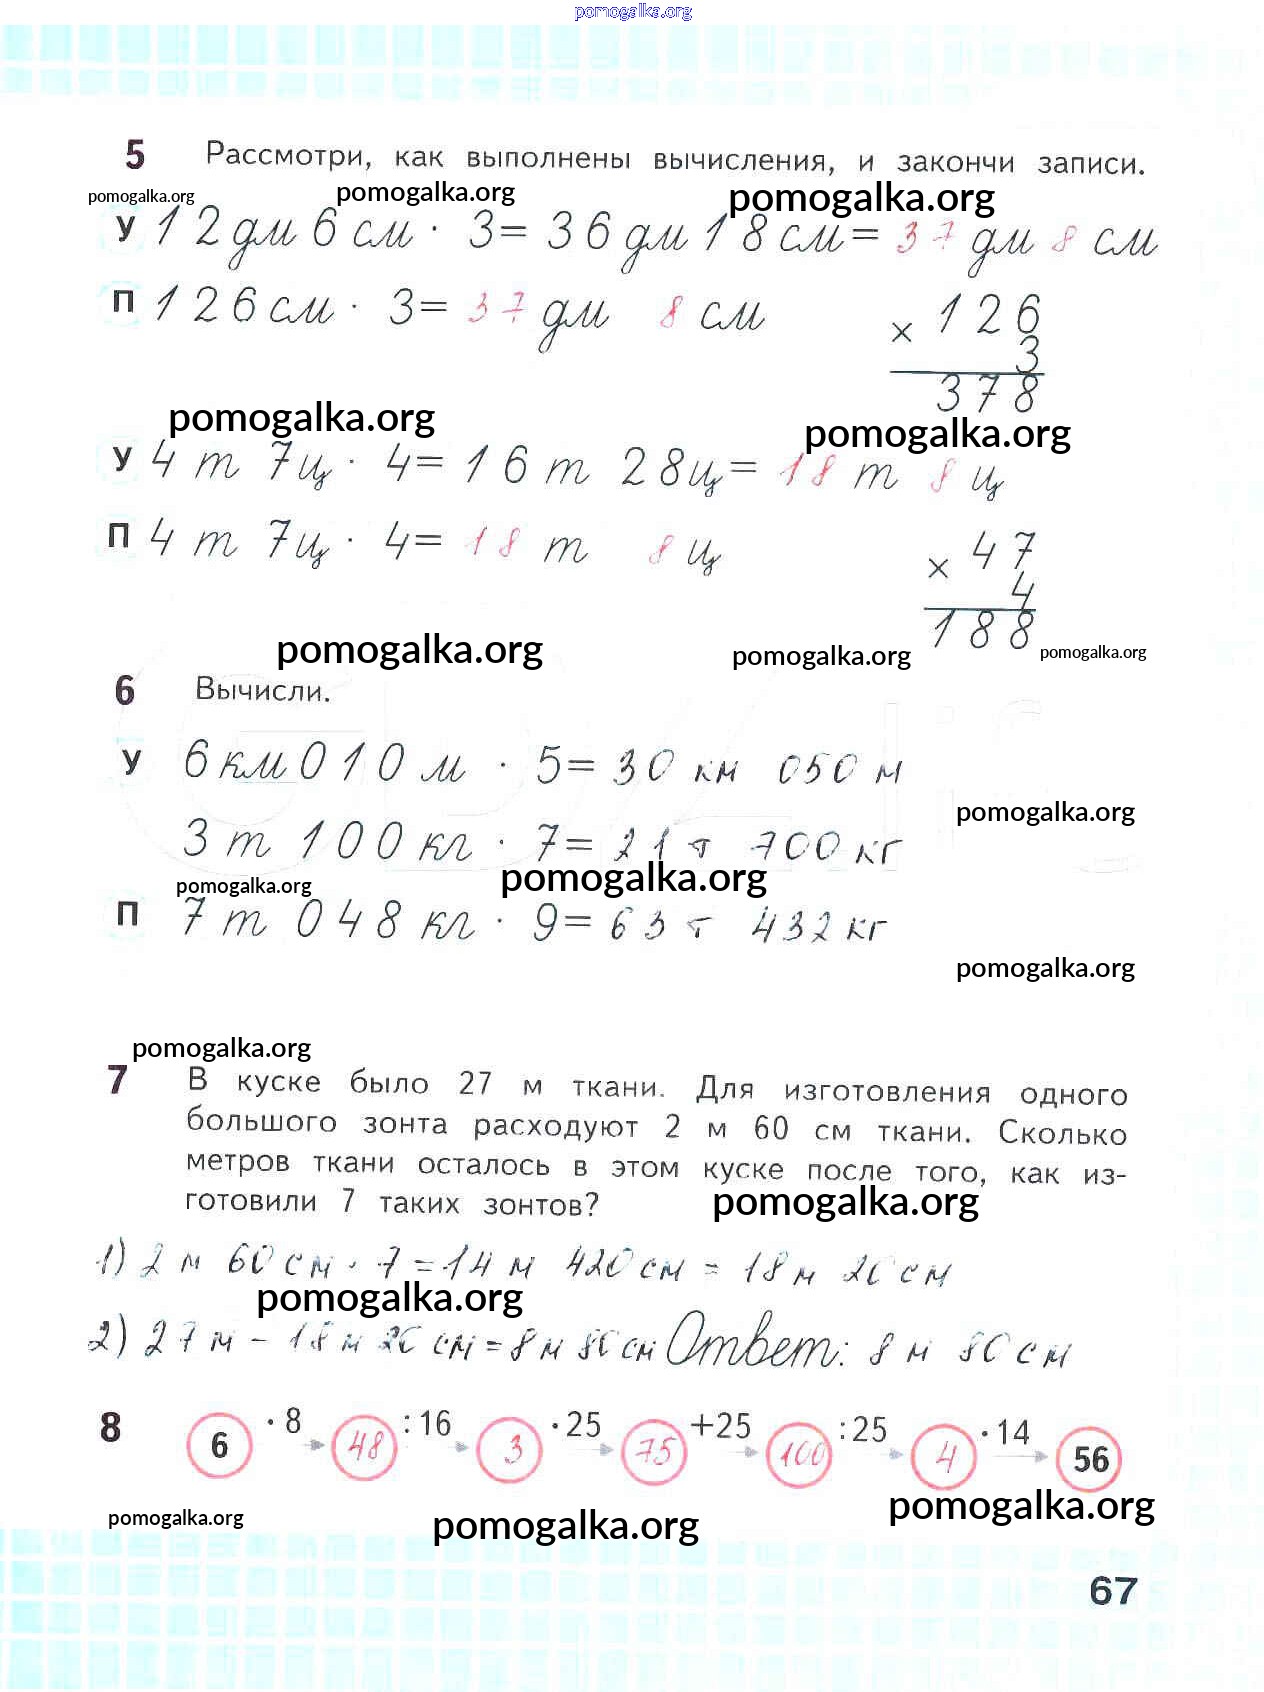 pomogalka.org
5 Рассмотри, как выполнены вычисления, и закончи записи.
pomogalka.org pomogalka.org pomogalka.org
У 12 дм 6 см · 3 = 36 дм 18 см = 37 дм 8 см
П 126 см · 3 = 37 дм 8 см
× 126
3
378
pomogalka.org pomogalka.org
У 4 т 7 ц · 4 = 16 т 28 ц = 18 т 8 ц
П 4 т 7 ц · 4 = 18 т 8 ц
× 47
4
188
pomogalka.org pomogalka.org pomogalka.org
6 Вычисли.
У 6 км 010 м · 5 = 30 км 050 м
pomogalka.org
3 т 100 кг · 7 = 21 т 700 кг
pomogalka.org pomogalka.org
П 7 т 048 кг · 9 = 63 т 432 кг
pomogalka.org
pomogalka.org
7 В куске было 27 м ткани. Для изготовления одного
большого зонта расходуют 2 м 60 см ткани. Сколько
метров ткани осталось в этом куске после того, как из-
готовили 7 таких зонтов?
pomogalka.org
1) 2 м 60 см · 7 = 14 м 420 см = 18 м 20 см
pomogalka.org
2) 27 м – 18 м 20 см = 8 м 80 см Ответ: 8 м 80 см
8 6 · 8 48 : 16 3 · 25 75 +25 100 : 25 4 · 14 56
pomogalka.org pomogalka.org pomogalka.org
67